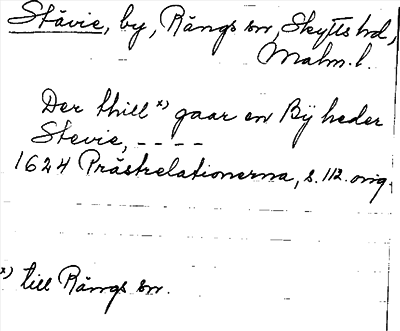 Stävie, by, Rängs sn, Skytts hd,
Malm. l.
Der thill x) gaar en Bÿ heder
Stevie, - - - -
1624 Prästrelationerna, s. 112. orig.
x) till Rängs sn.